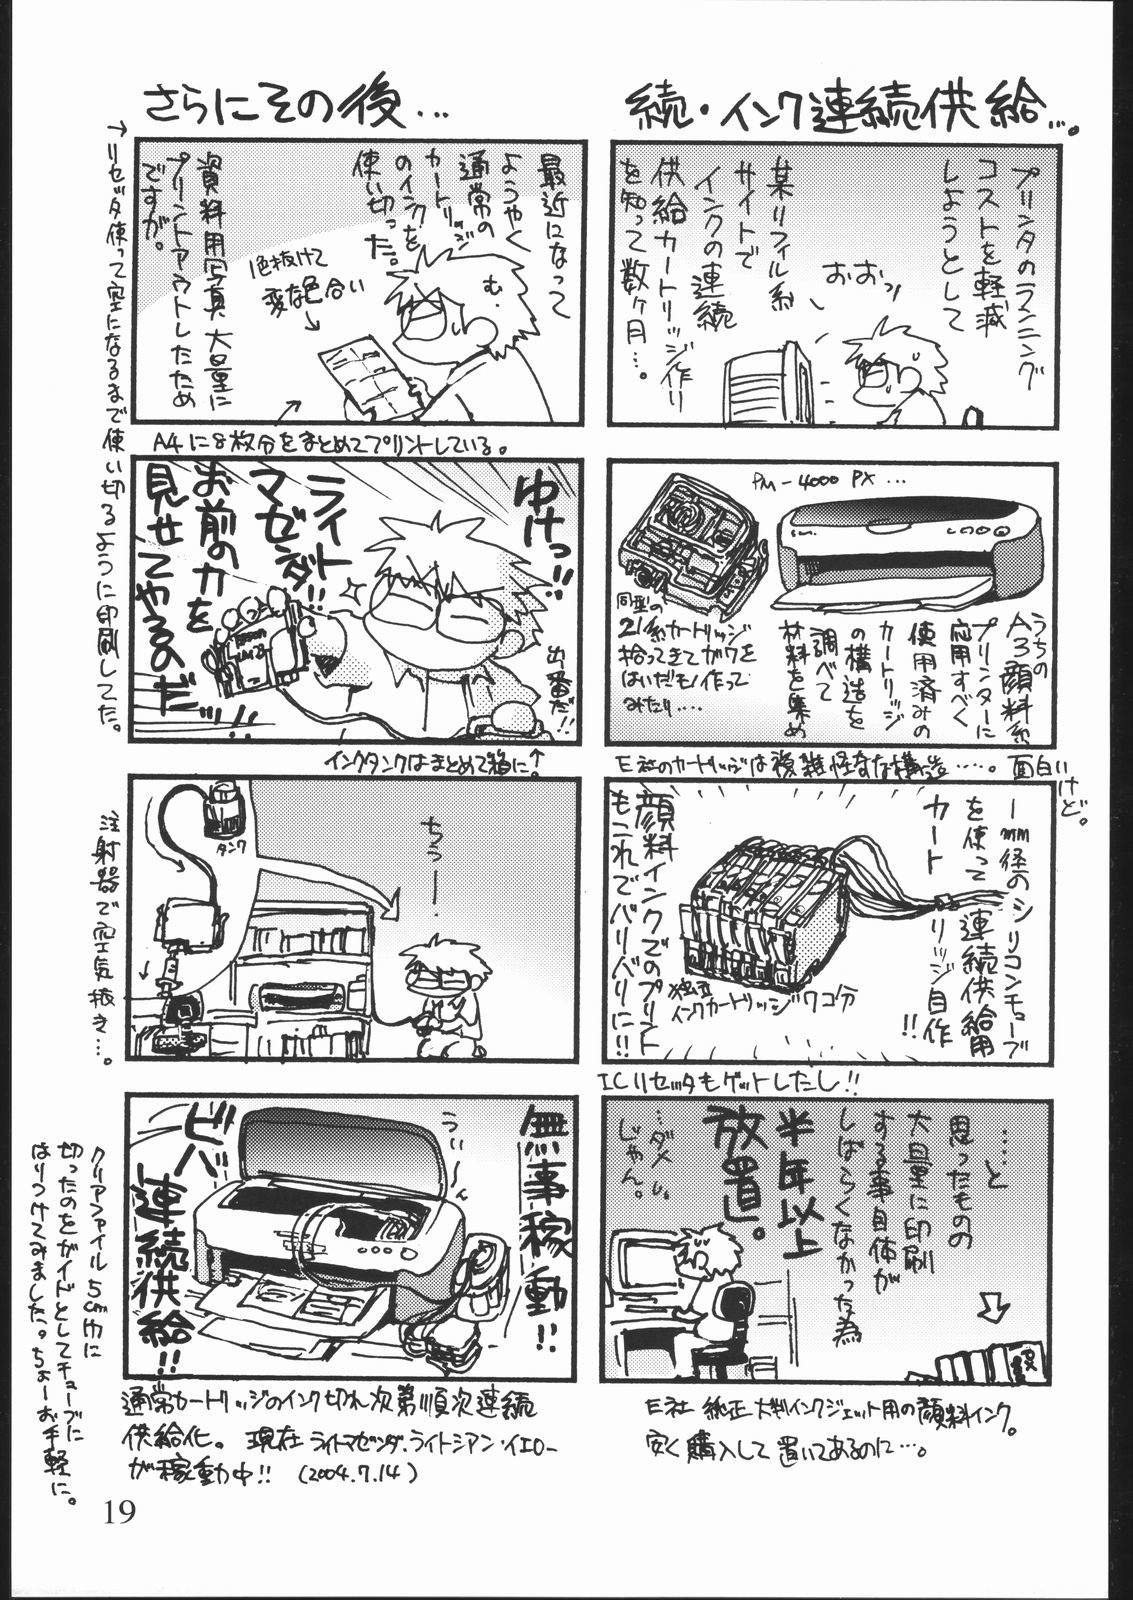 続・インク連続供給…。
プリンタのランニング
コストを軽減
しようとして
某リフィル系
サイトで
インクの連続
供給カートリッジ作り
を知って数ヶ月…。
おおっ
PM-4000PX…
うちの
A3顔料系
プリンターに
応用すべく
使用済みの
カートリッジ
の構造を
調べて
材料を集め
同型の
21系カートリッジ
拾ってきてガワを
はいだもん作って
みたり……
E社のカードリッジは複雑怪奇な構造……。面白いけど。
1mm径のシリコンチューブ
を使って連続供給用
カートリッジ自作!!
独立
インクカートリッジ7コ分
顔料インクでのプリント
もこれでバリバリに!!
ICリセッタもゲットしたし!!
……と
思ったものの
大量に印刷
する事自体が
しばらくなかった為
半年以上
放置。
…ダメ
じゃん。
E社 純正 大判インクジェット用の顔料インク。
安く購入して置いてあるのに…。
さらにその後…
最近になって
ようやく
通常の
カートリッジ
のインクを
使い切った。
む…
1色抜けて
変な色合い
資料用写真大量に
プリントアウトしたため
ですが。
→リセッタ使って空になるまで使い切るように印刷してた。
A4に8枚分をまとめてプリントしている。
ゆけっ!!
ライト
マゼンダ!!
お前の力を
見せてやるのだ!!
出番だ!!
インクタンクはまとめて箱に。↑
タンク
ちぅー.
注射器で空気抜き…。
無事稼動!!
うぃーん
ビバ
連続供給!!
通常カードリッジのインク切れ次第順次連続
供給化。現在ライトマゼンダ・ライトシアン・イエロー
が稼動中!! (2004.7.14)
クリアファイル5cm巾に
切ったのをガイドとしてチューブに
はりつけてみました。ちょーお手軽に。
19